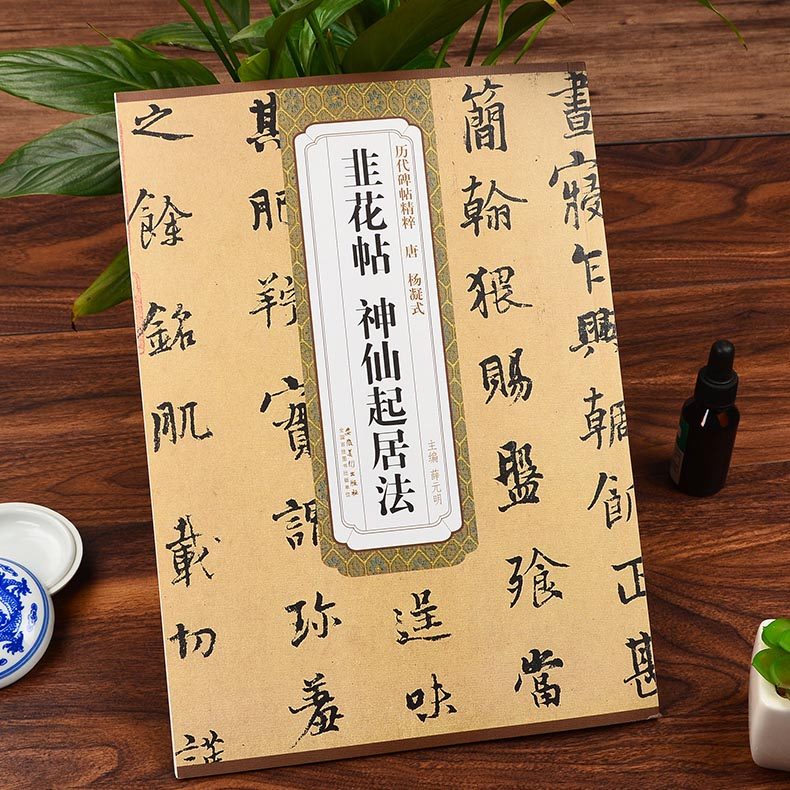 晝寢乍興輖飢正甚
簡翰猥賜盤飧當
历代碑帖精粹 唐 杨凝式
韭花帖 神仙起居法
主编 薛元明
安徽美术出版社
全国百佳图书出版单位
逞味
其肥羜實謂珍羞
之餘銘肌載切謹